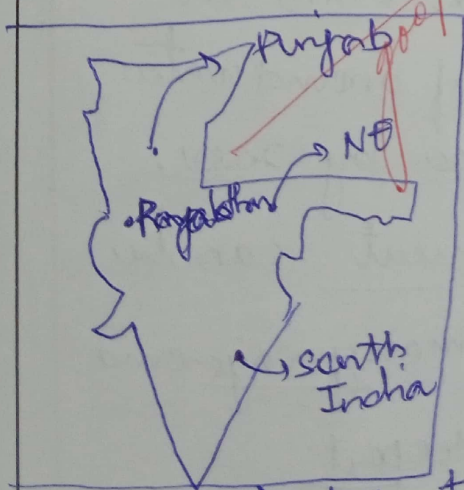 Punjab
good
NE
Rajasthan
South
India